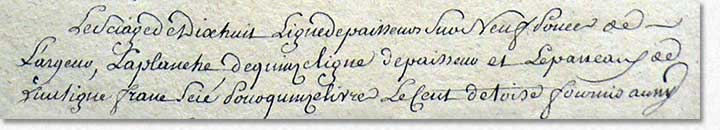 Le sciage de dixhuit Ligne depaisseur sur Neuf pouce de
Largeur, La planche de quinze ligne depaisseur et Le panneau de
huit ligne franc scié pour quinze livre Le Cent de toise fournis